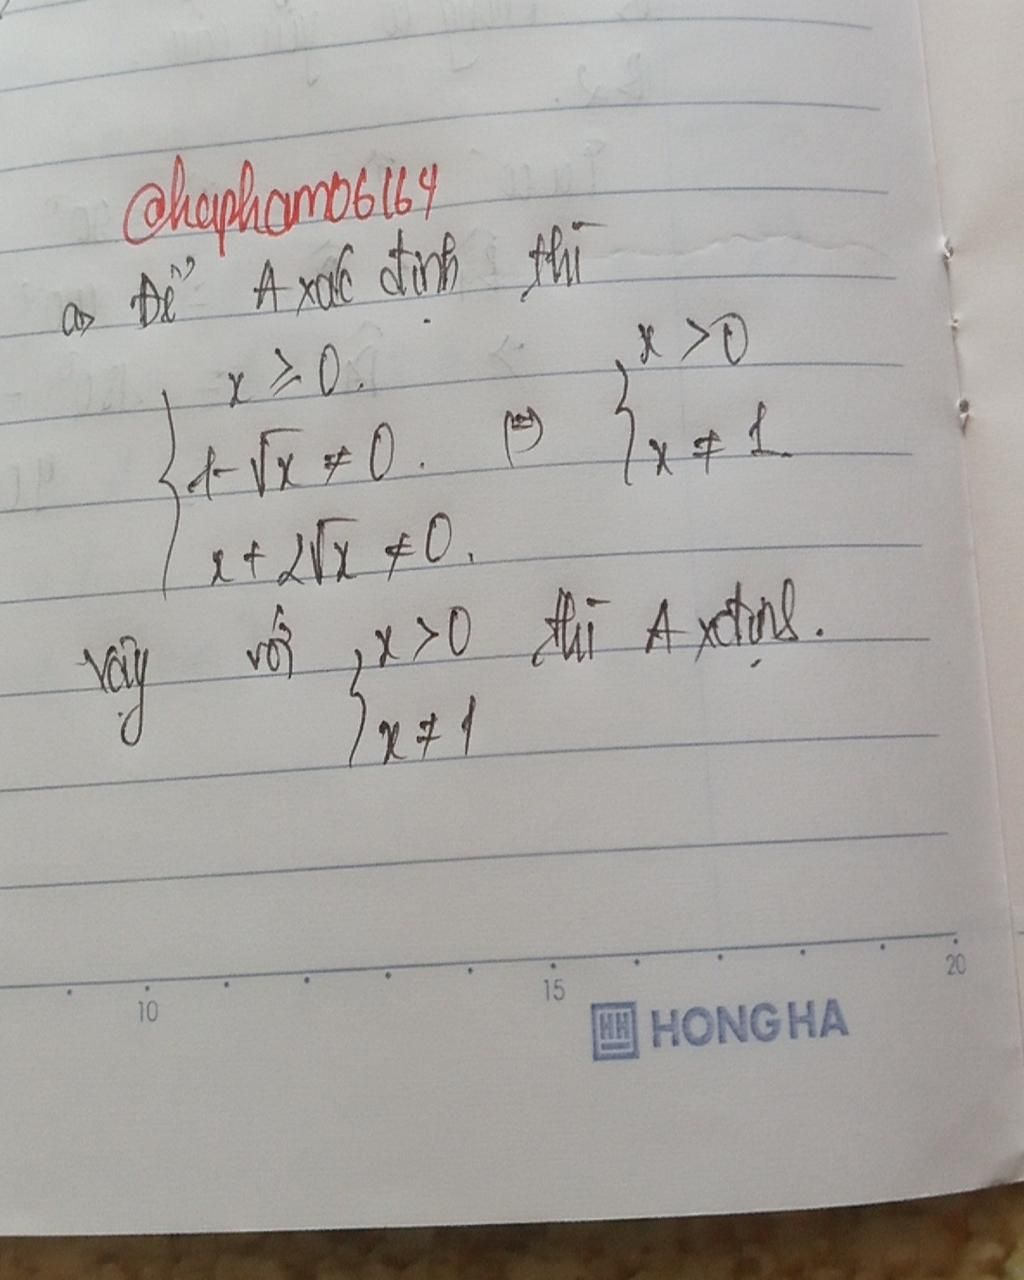 @hapham06164
a> Để A xác định thì
x ≥ 0.
1-√x ≠ 0. (=) { x > 0
x ≠ 1
x + 2√x ≠ 0.
vậy với { x > 0 thì A xđịnh.
x ≠ 1
10 15 20
HH HONG HA